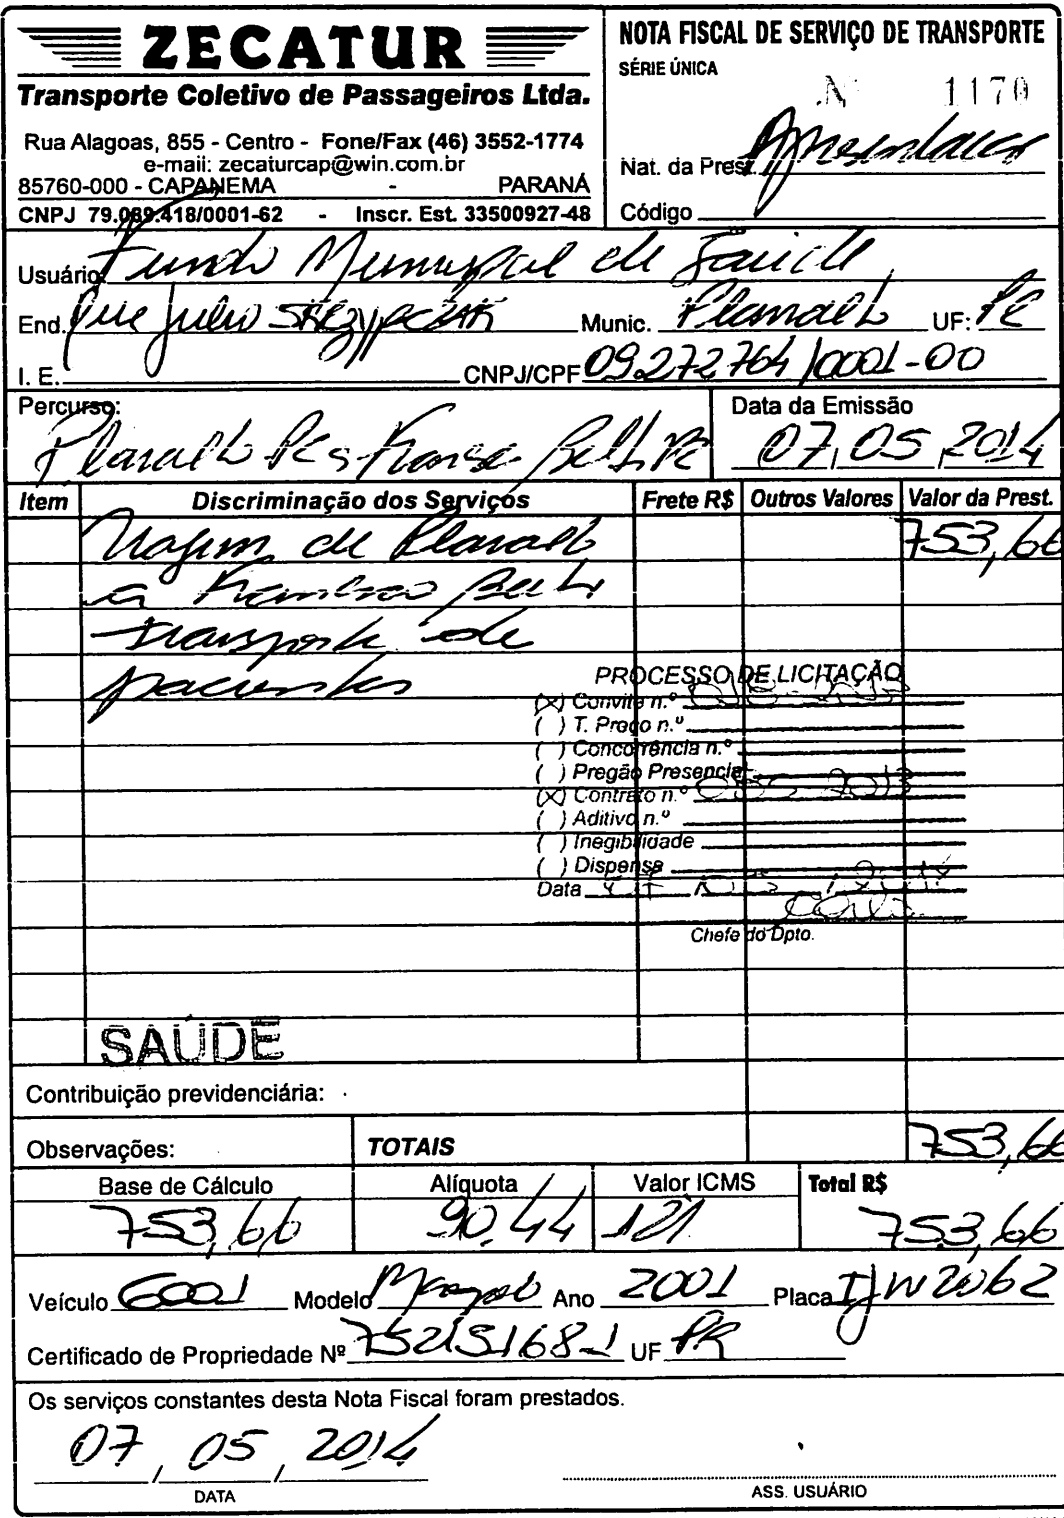 ZECATUR
Transporte Coletivo de Passageiros Ltda.
Rua Alagoas, 855 - Centro - Fone/Fax (46) 3552-1774
e-mail: zecaturcap@win.com.br
85760-000 - CAPANEMA - PARANÁ
CNPJ 79.089.418/0001-62 - Inscr. Est. 33500927-48
NOTA FISCAL DE SERVIÇO DE TRANSPORTE
SÉRIE ÚNICA
Nº 1170
Nat. da Prest.
Código
Usuário: Fundo Municipal de Saúde
End. Rua Julio Munic. Planalto UF: PR
I. E. CNPJ/CPF 09.272764/0001-00
Percurso: Data da Emissão
Planalto 07,05,2014
Item Discriminação dos Serviços Frete R$ Outros Valores Valor da Prest.
Viagem de Planalto 753,66
a Francisco Belt
transporte de
pacientes
PROCESSO DE LICITAÇÃO
(X) Convite n.º
( ) T. Preço n.º
( ) Concorrência n.º
( ) Pregão Presencial
(X) Contrato n.º 2013
( ) Aditivo n.º
( ) Inegibilidade
( ) Dispensa
Data
Chefe do Dpto.
SAÚDE
Contribuição previdenciária:
Observações: TOTAIS 753,66
Base de Cálculo Alíquota Valor ICMS Total R$
753,66 90,44 121 753,66
Veículo 6001 Modelo Ano 2001 Placa IJW2062
Certificado de Propriedade Nº 75215168-1 UF PR
Os serviços constantes desta Nota Fiscal foram prestados.
07, 05, 2014
DATA ASS. USUÁRIO